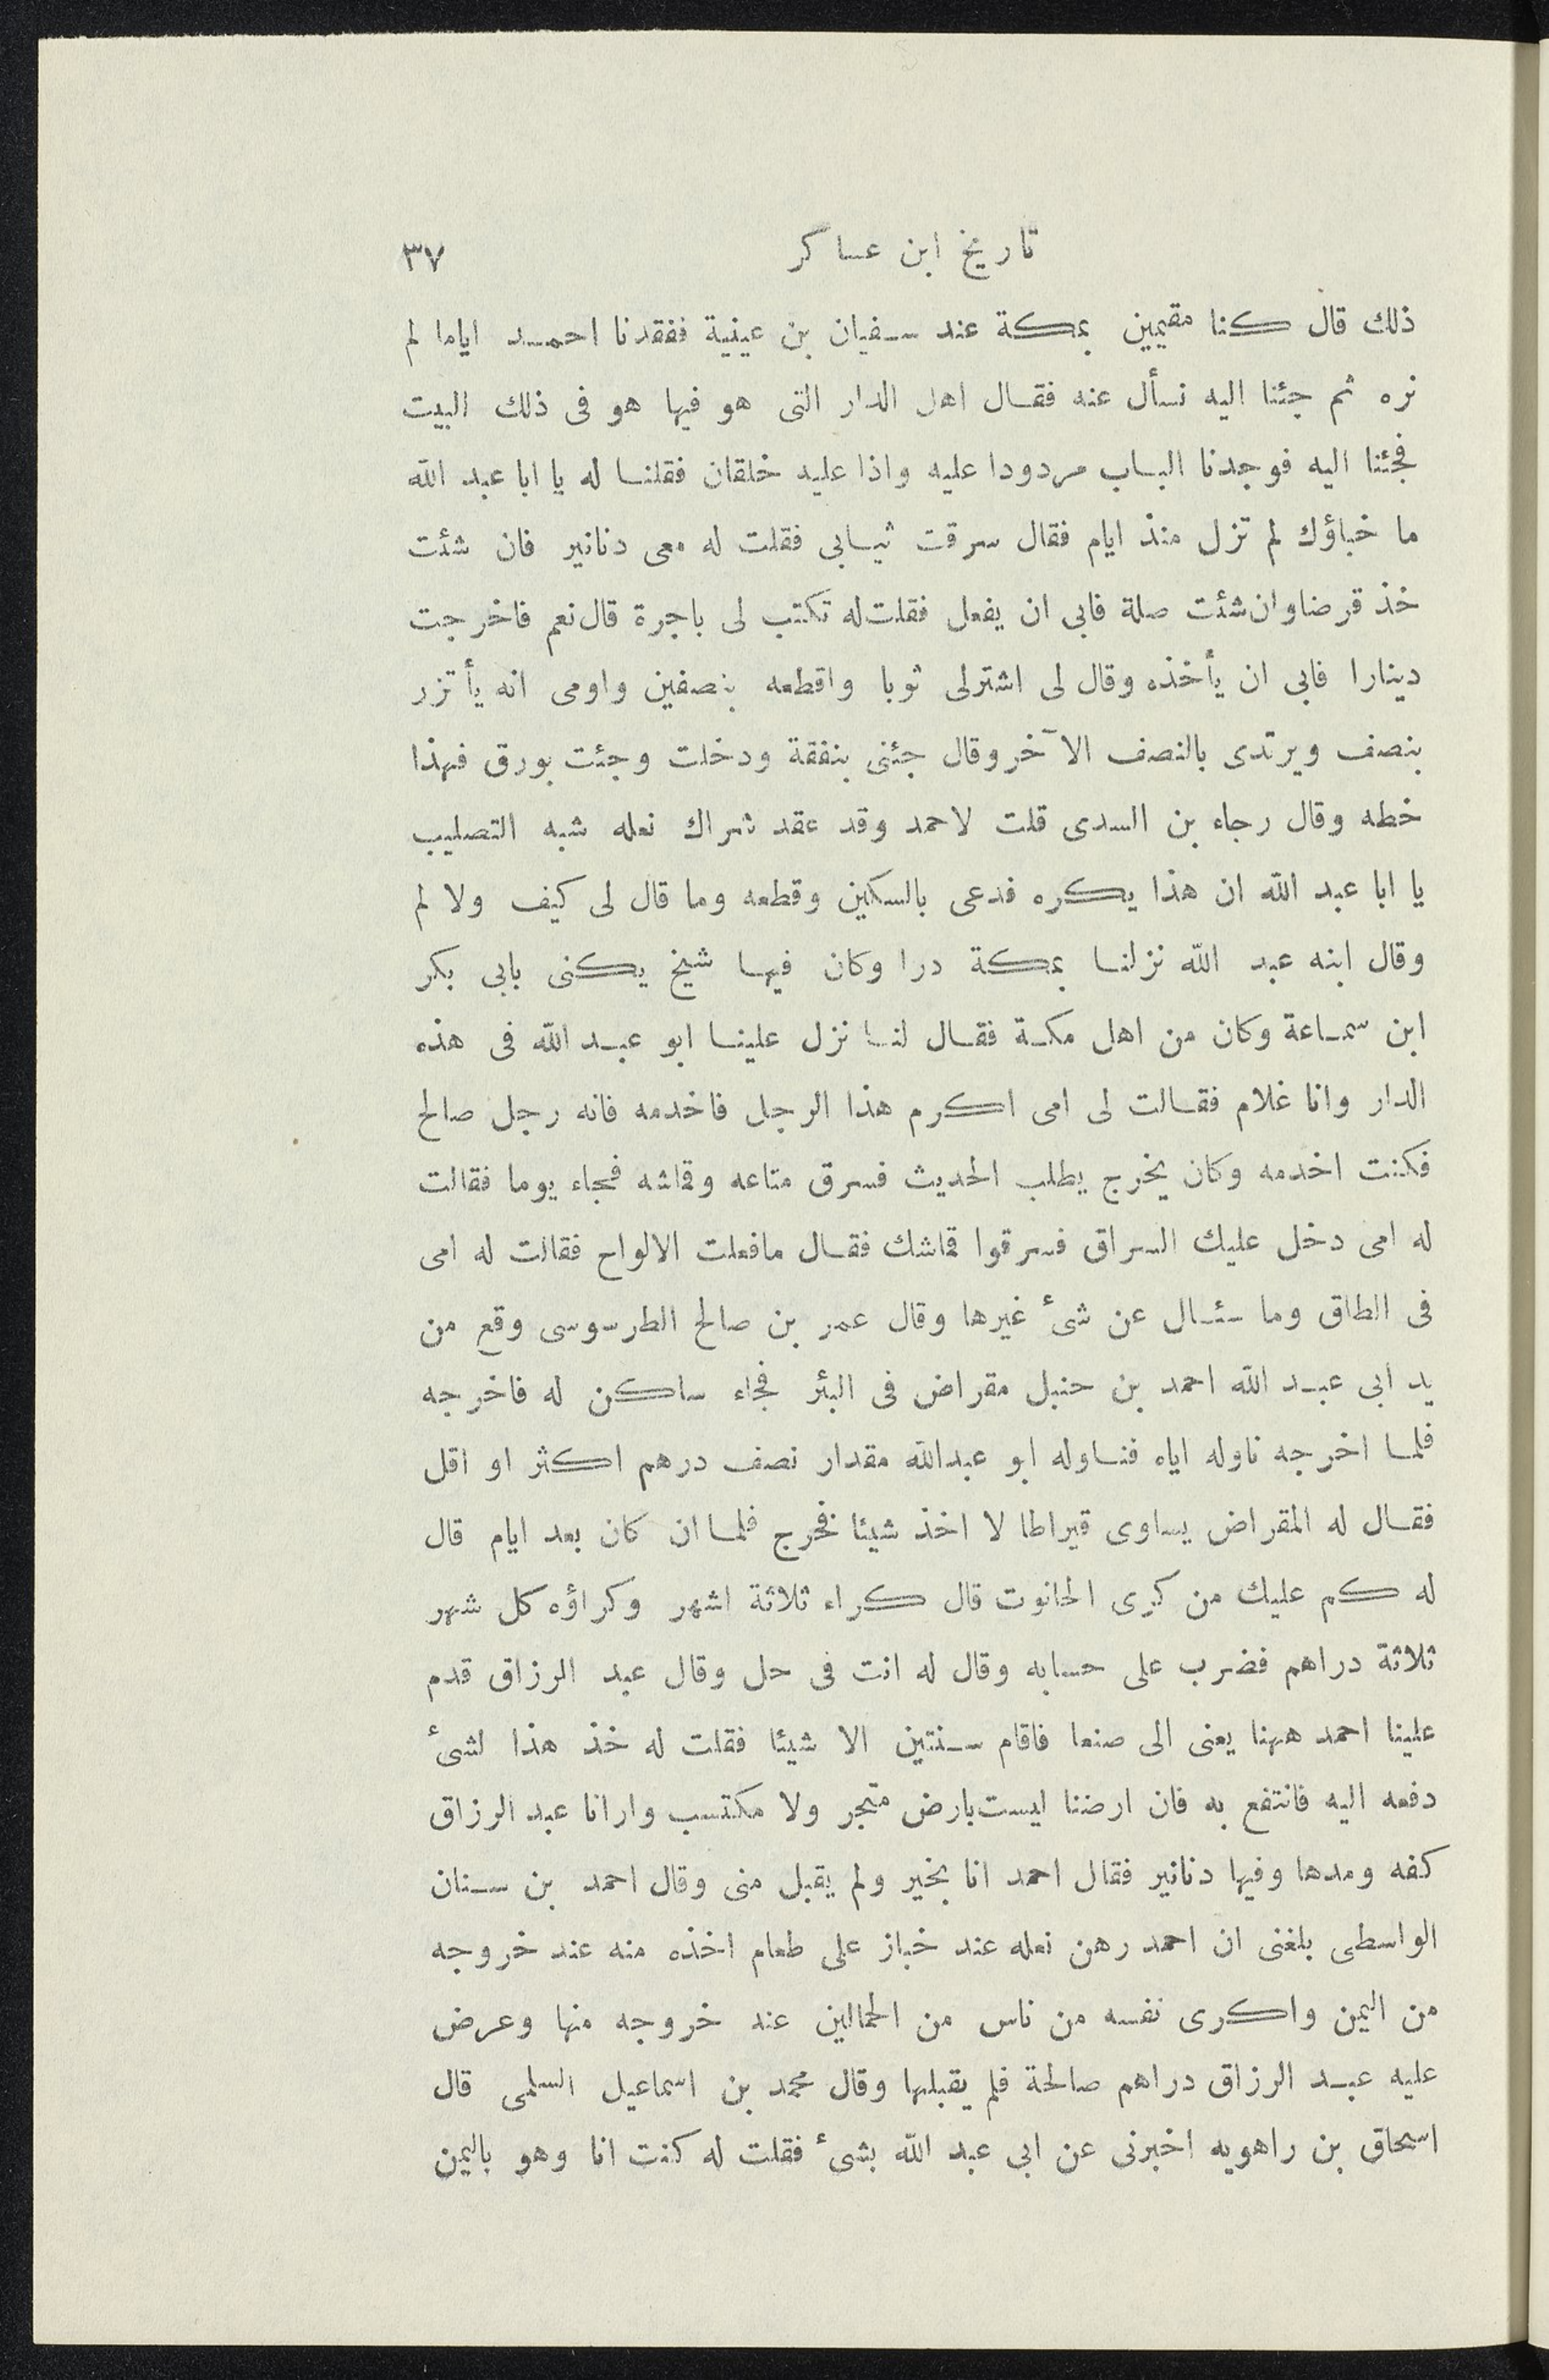 تاريخ ابن عساكر ٣٧
ذلك قال كنا مقيمين بمكة عند سفيان بن عينية ففقدنا احمد اياما لم
نره ثم جئنا اليه نسأل عنه فقال اهل الدار التى هو فيها هو فى ذلك البيت
فجئنا اليه فوجدنا الباب مردودا عليه واذا عليه خلقان فقلنا له يا ابا عبد الله
ما خباؤك لم تزل منذ ايام فقال سرقت ثيابى فقلت له معى دنانير فان شئت
خذ قرضا وان شئت صلة فابى ان يفعل فقلت له تكتب لى باجرة قال نعم فاخرجت
دينارا فابى ان يأخذه وقال لى اشترلى ثوبا واقطعه بنصفين واومى انه يأتزر
بنصف ويرتدى بالنصف الآخر وقال جئنى بنفقة ودخلت وجئت بورق فهذا
خطه وقال رجاء بن السدى قلت لاحمد وقد عقد شراك نعله شبه التصليب
يا ابا عبد الله ان هذا يكره فدعى بالسكين وقطعه وما قال لى كيف ولا لم
وقال ابنه عبد الله نزلنا بمكة درا وكان فيها شيخ يكنى بابى بكر
ابن سماعة وكان من اهل مكة فقال لنا نزل علينا ابو عبد الله فى هذه
الدار وانا غلام فقالت لى امى اكرم هذا الرجل فاخدمه فانه رجل صالح
فكنت اخدمه وكان يخرج يطلب الحديث فسرق متاعه وقماشه فجاء يوما فقالت
له امى دخل عليك السراق فسرقوا قماشك فقال مافعلت الالواح فقالت له امى
فى الطاق وما سئال عن شئ غيرها وقال عمر بن صالح الطرسوسى وقع من
يد ابى عبد الله احمد بن حنبل مقراض فى البئر فجاء ساكن له فاخرجه
فلما اخرجه ناوله اياه فناوله ابو عبدالله مقدار نصف درهم اكثر او اقل
فقال له المقراض يساوى قيراطا لا اخذ شيئا فخرج فلما ان كان بعد ايام قال
له كم عليك من كرى الحانوت قال كراء ثلاثة اشهر وكراؤه كل شهر
ثلاثة دراهم فضرب على حسابه وقال له انت فى حل وقال عبد الرزاق قدم
علينا احمد ههنا يعنى الى صنعا فاقام سنتين الا شيئا فقلت له خذ هذا لشئ
دفعه اليه فانتفع به فان ارضنا ليست بارض متجر ولا مكتسب وارانا عبد الرزاق
كفه ومدها وفيها دنانير فقال احمد انا بخير ولم يقبل منى وقال احمد بن سنان
الواسطى بلغنى ان احمد رهن نعله عند خباز على طعام اخذه منه عند خروجه
من اليمن واكرى نفسه من ناس من الحمالين عند خروجه منها وعرض
عليه عبد الرزاق دراهم صالحة فلم يقبلها وقال محمد بن اسماعيل السلمى قال
اسحاق بن راهويه اخبرنى عن ابى عبد الله بشئ فقلت له كنت انا وهو باليمن